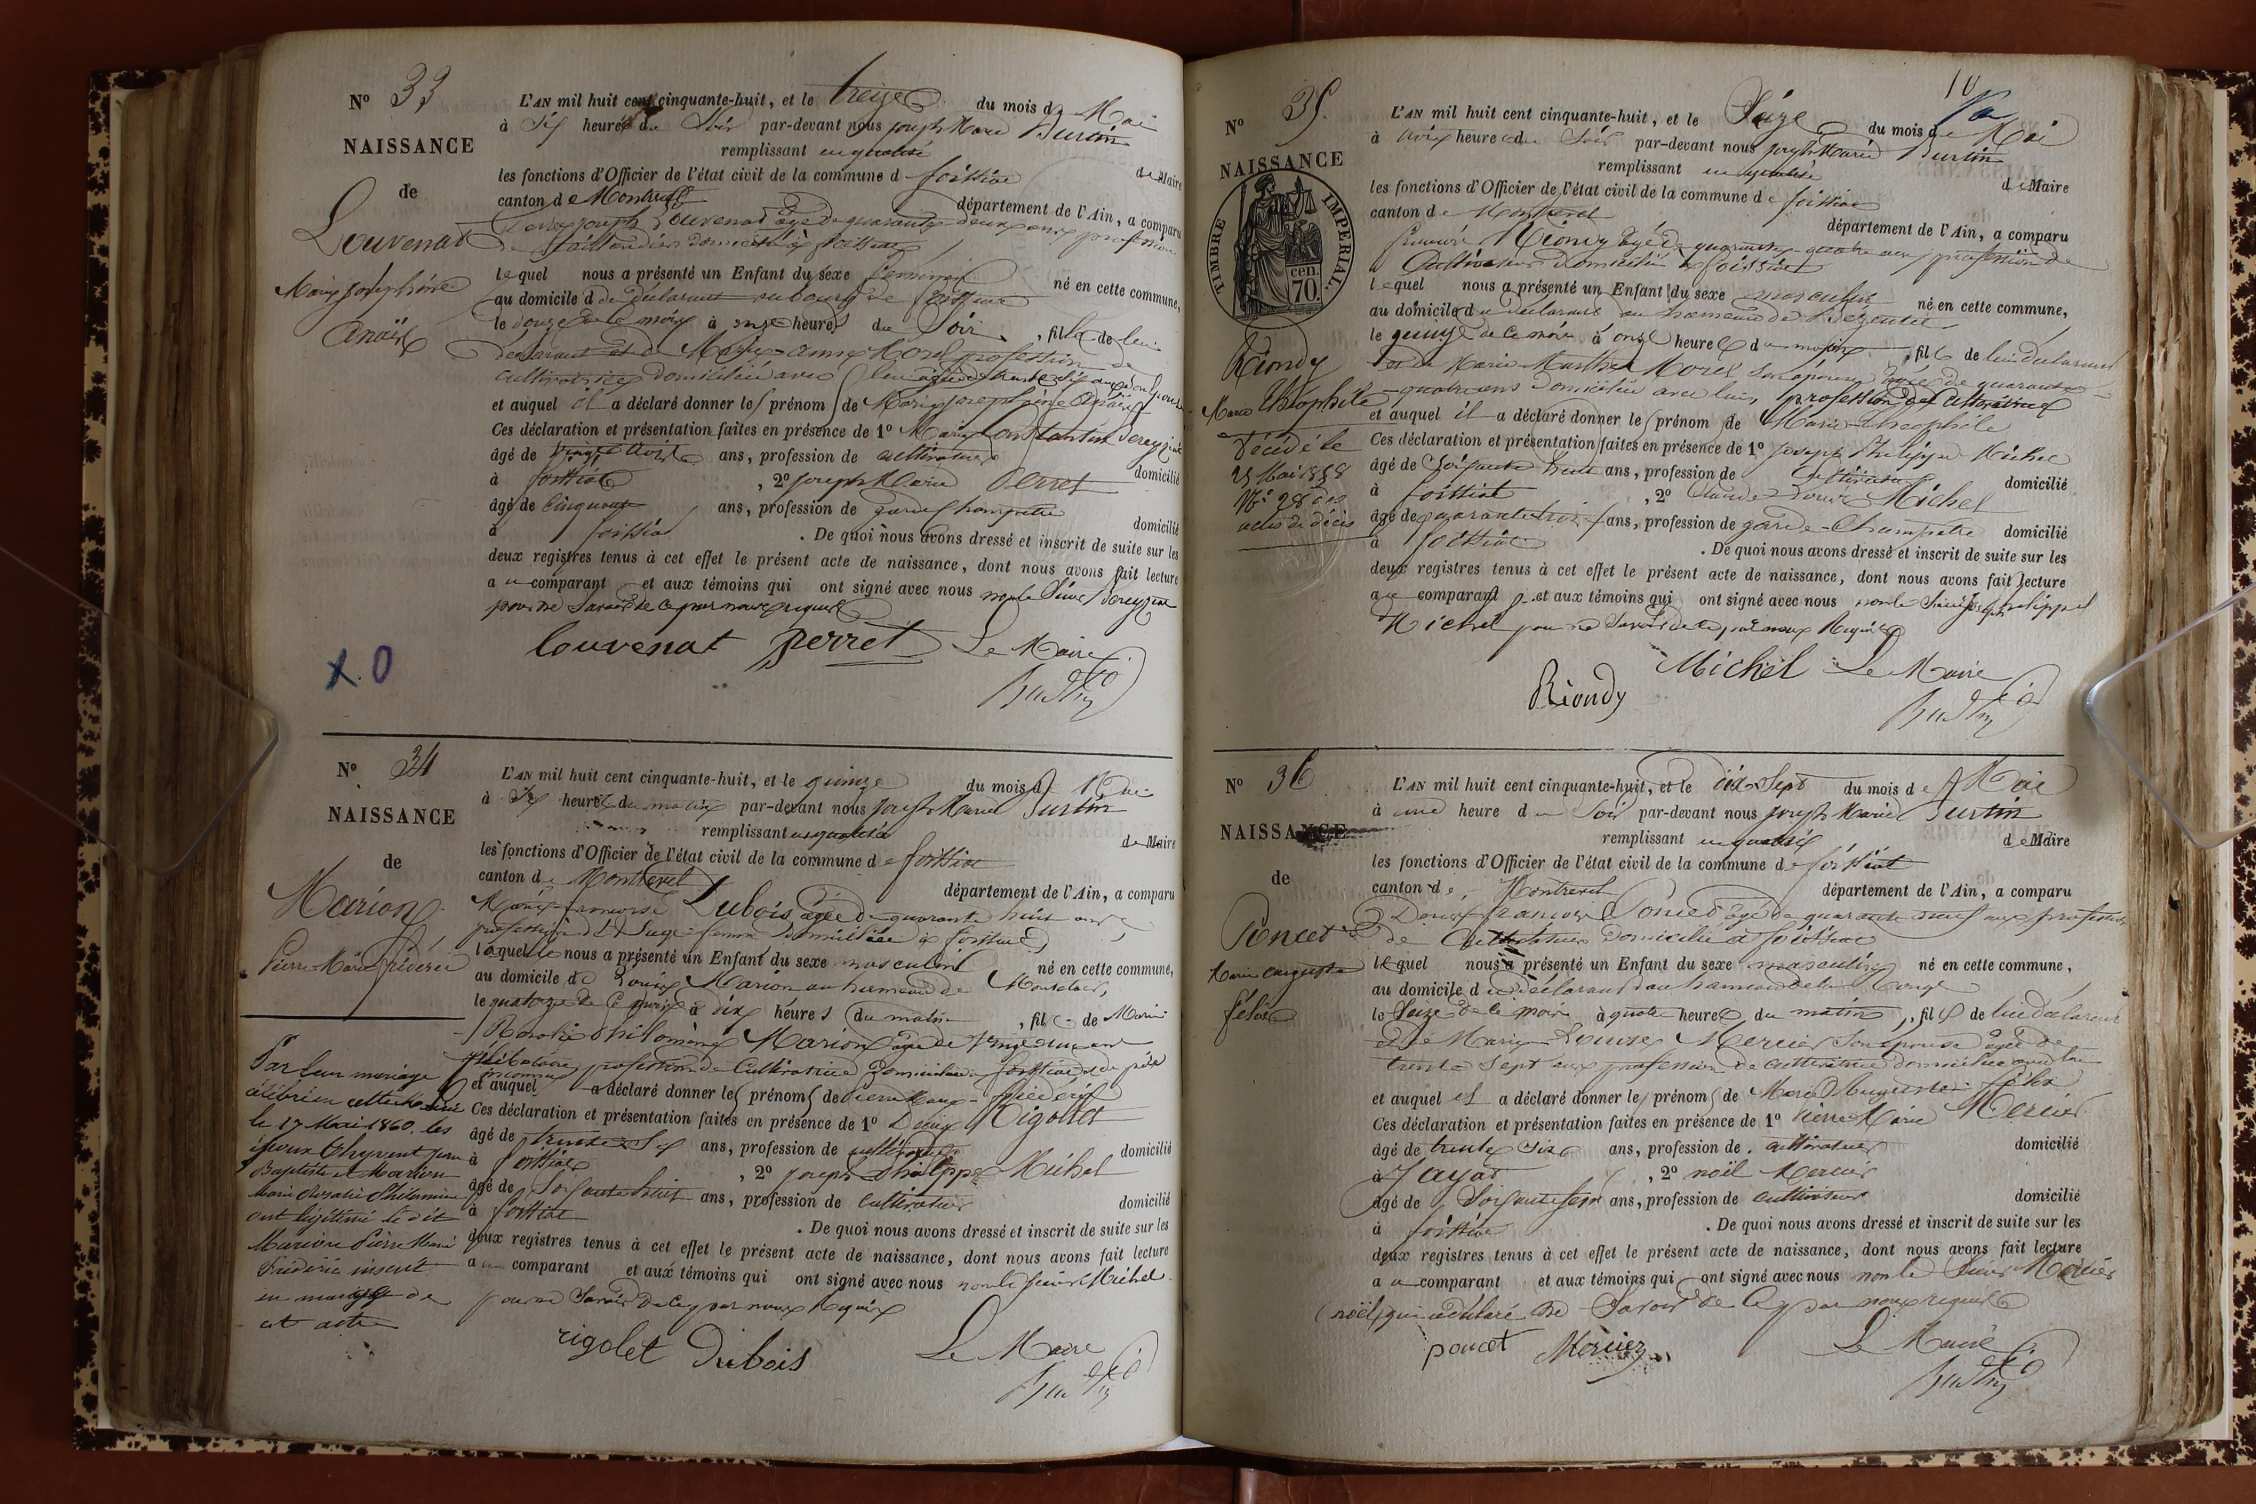 N° 33
NAISSANCE
de
Louvenat
Marie Joséphine
Anaïs
L'AN mil huit cent cinquante-huit, et le treize du mois de Mai
à Six heures du Soir par-devant nous Joseph Marie Burtin
remplissant en qualité de Maire
les fonctions d'Officier de l'état civil de la commune de foissiat
canton de Montrevel département de l'Ain, a comparu
Joseph Louvenat âgé de quarante deux ans profession
de domicilié à foissiat
lequel nous a présenté un Enfant du sexe féminin né en cette commune,
au domicile du déclarant au bourg de foissiat
le douze de ce mois à onze heures du Soir, fille de lui
déclarant et de Marie anne Morel profession de
cultivatrice domiciliée avec lui âgée de trente six ans son épouse
et auquel il a déclaré donner les prénoms de Marie Joséphine Anaïs
Ces déclaration et présentation faites en présence de 1° Marie Constantin Dereyziat
âgé de vingt trois ans, profession de cultivateur domicilié
à foissiat, 2° Joseph Marie Perret
âgé de cinquante ans, profession de garde champetre domicilié
à foissiat. De quoi nous avons dressé et inscrit de suite sur les
deux registres tenus à cet effet le présent acte de naissance, dont nous avons fait lecture
au comparant et aux témoins qui ont signé avec nous non le Sieur Dereyziat
pour ne Savoir de ce par nous requis
Louvenat perret Le Maire
Burtin
X.O
N° 34
NAISSANCE
de
Marion
Pierre Marie fréderic
Par leur mariage
célébré en cette Mairie
le 17 Mai 1860, les
époux Chyvent Jean
Baptiste et Marion
Marie Rosalie Philomène
ont légitimé le dit
Marion Pierre Marie
Fréderic inscrit
en marge de
cet acte
L'AN mil huit cent cinquante-huit, et le quinze du mois de Mai
à Six heures du matin par-devant nous Joseph Marie Burtin
remplissant en qualité de Maire
les fonctions d'Officier de l'état civil de la commune de foissiat
canton de Montrevel département de l'Ain, a comparu
Marie francoise Dubois âgée de quarante huit ans
profession de Sage femme domiciliée à foissiat
laquelle nous a présenté un Enfant du sexe masculin né en cette commune,
au domicile de Louis Marion au hameau de
le quatorze de ce mois à dix heures du matin, fils de Marie
Rosalie Philomène Marion âgée de vingt deux ans
célibataire profession de Cultivatrice domiciliée à foissiat et de père
inconnu
et auquel a déclaré donner les prénoms de Pierre Marie fréderic
Ces déclaration et présentation faites en présence de 1° Denis Rigollet
âgé de trente Six ans, profession de cultivateur domicilié
à foissiat, 2° Joseph Philippe Michel
âgé de Soixante huit ans, profession de cultivateur domicilié
à foissiat. De quoi nous avons dressé et inscrit de suite sur les
deux registres tenus à cet effet le présent acte de naissance, dont nous avons fait lecture
a comparant et aux témoins qui ont signé avec nous non le sieur Michel
pour ne Savoir de ce par nous Requis
rigolet Dubois Le Maire
Burtin
10
N° 35
NAISSANCE
TIMBRE IMPERIAL.
70. cen.
Riondy
Marie Théophile
Décédé le
25 Mai 1858
N° 28 des
actes de décès
L'AN mil huit cent cinquante-huit, et le Seize du mois de Mai
à trois heures du Soir par-devant nous Joseph Marie Burtin
remplissant en qualité de Maire
les fonctions d'Officier de l'état civil de la commune de foissiat
canton de Montrevel département de l'Ain, a comparu
Riondy âgé de quarante quatre ans profession de
Cultivateur domicilié à foissiat
lequel nous a présenté un Enfant du sexe masculin né en cette commune,
au domicile du déclarant au hameau de
le quinze de ce mois à onze heures du matin, fils de lui déclarant
et de Marie Marthe Morel Son épouse âgée de quarante
quatre ans domiciliée avec lui, profession de cultivatrice
et auquel il a déclaré donner les prénoms de Marie Théophile
Ces déclaration et présentation faites en présence de 1° Joseph Philippe Michel
âgé de Soixante huit ans, profession de Cultivateur domicilié
à foissiat, 2° Claude Louis Michel
âgé de quarante trois ans, profession de garde-Champetre domicilié
à foissiat. De quoi nous avons dressé et inscrit de suite sur les
deux registres tenus à cet effet le présent acte de naissance, dont nous avons fait lecture
au comparant et aux témoins qui ont signé avec nous non le Sieur Joseph philippe
Michel pour ne Savoir de ce par nous Requis
Riondy Michel Le Maire
Burtin
N° 36
NAISSANCE
de
Poncet
Marie auguste
félix
L'AN mil huit cent cinquante-huit, et le dix Sept du mois de Mai
à une heure du Soir par-devant nous Joseph Marie Burtin
remplissant en qualité de Maire
les fonctions d'Officier de l'état civil de la commune de foissiat
canton de Montrevel département de l'Ain, a comparu
Denis francois Poncet âgé de quarante neuf ans profession
de Cultivateur domicilié à foissiat
lequel nous a présenté un Enfant du sexe masculin né en cette commune,
au domicile du déclarant au hameau de
le Seize de ce mois à quatre heures du matin, fils de lui déclarant
et de Marie Louise Mercier Son épouse âgée de
trente Sept ans profession de cultivatrice domiciliée avec lui
et auquel il a déclaré donner les prénoms de Marie Auguste félix
Ces déclaration et présentation faites en présence de 1° Pierre Marie Mercier
âgé de trente Six ans, profession de cultivateur domicilié
à Jayat, 2° noël Mercier
âgé de Soixante Sept ans, profession de cultivateur domicilié
à foissiat. De quoi nous avons dressé et inscrit de suite sur les
deux registres tenus à cet effet le présent acte de naissance, dont nous avons fait lecture
au comparant et aux témoins qui ont signé avec nous non le Sieur Mercier
(noël) qui a déclaré ne Savoir de ce par nous requis
poncet Mercier Le Maire
Burtin